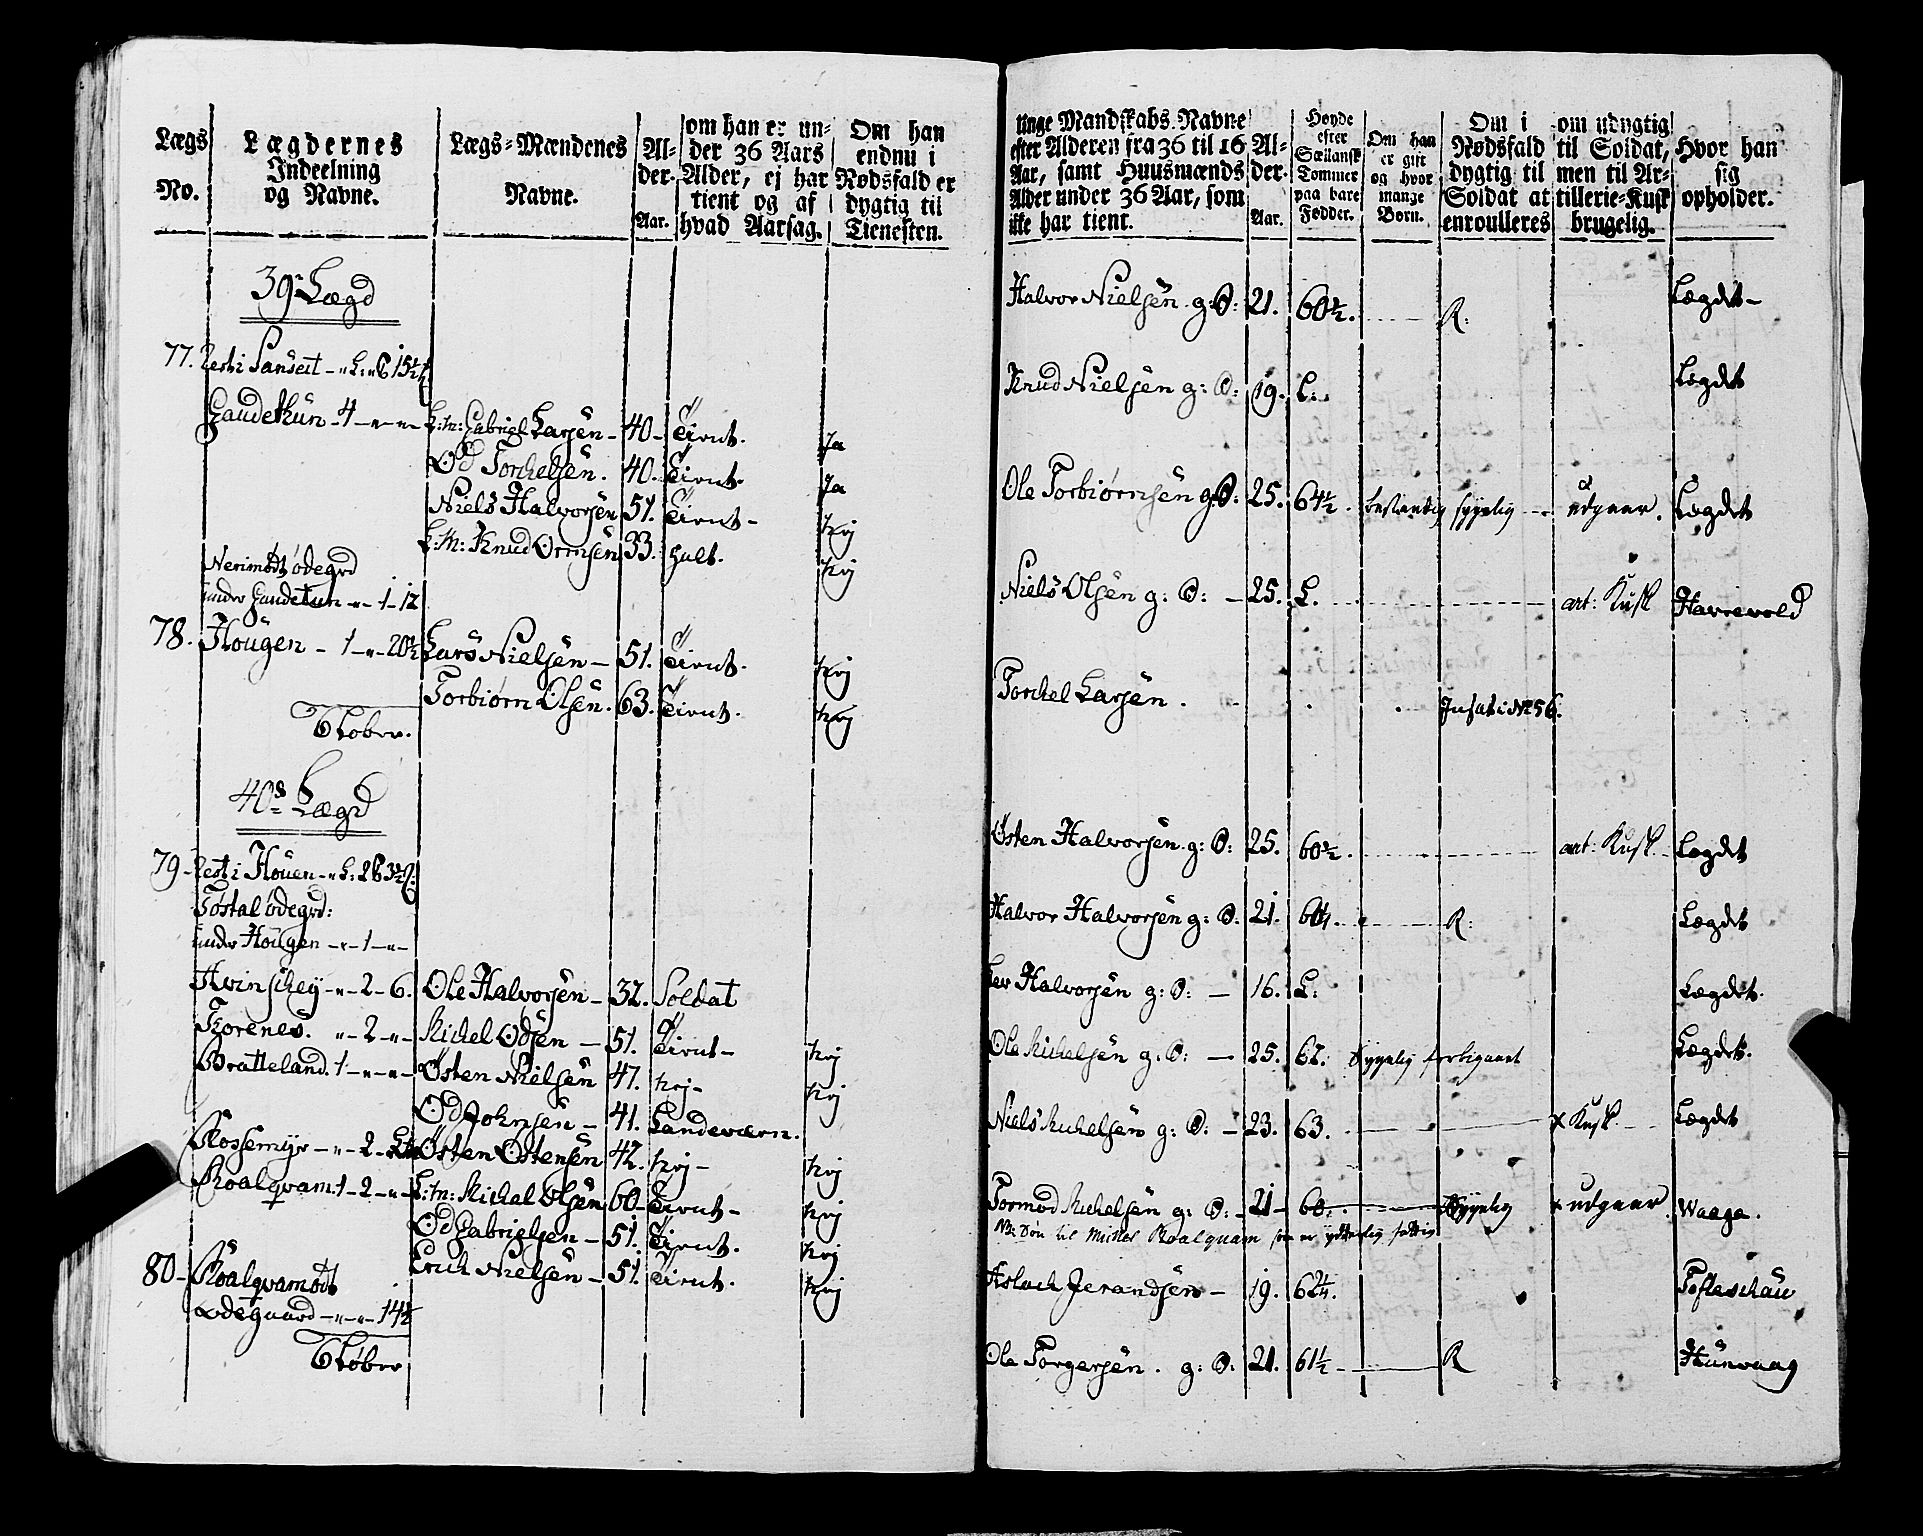 Lægs
No.
Lægdernes
Indeelning
og Navne.
Lægs-Mændenes
Navne.
Al-
der.
Aar.
om han er un-
der 36 Aars
Alder, ej har
tient og af
hvad Aarsag.
Om han
endnu i
Nødsfald er
dygtig til
Tienesten.
39 Lægd
77. Rest i 15½
Gaudetun 4 L:M: Gabriel Larsen 40 Tient. Ja
Od Torchelsen. 40. Tient. Ja
Niels Halvorsen 51. Tient Nej
L:M: Knud Ormsen 33. halt. Nej
ødegrd
under Gaudetun 1-12
78. Hougen 1 20½ Lars Nielsen 51. Tient. Nej
Torbiørn Olsen. 63. Tient. Nej
40 Lægd
79 Rest i Houen
ødegrd:
under Hougen 1
Hvinschey 2-6. Ole Halvorsen 32. Soldat
2 Michel Odsen 51. Tient Nej
Bratteland. 1 Østen Nielsen 47. Nej Nej
Od Johnsen 41. Landeværn.
Rossemyr 2 Østen Østensen 42. Nej Nej
Roalqvam 1-2 L:M: Michel Olsen 60 Tient Nej
Od Gabrielsen 51. Tient. Nej
Erich Nielsen 51. Tient. Nej
80 Roalqvamødt
Ødegaard 14½
unge Mandskabs Navne
efter Alderen fra 36 til 16
Aar, samt Huusmænds
Alder under 36 Aar, som
ikke har tient.
Al-
der.
Aar.
Høyde
efter
Siællansk
Tommer
paa bare
Fødder.
Om han
er gift
og hvor
mange
Børn.
Om i
Nødsfald
dygtig til
Soldat at
enroulleres
om udygtig
til Soldat,
men til Ar-
tillerie-Kusk
brugelig.
Hvor han
sig
opholder.
Halvor Nielsen g: D: 21. 60½. R: Lægdet
Knud Nielsen g: D: 19. L. Lægdet
Ole Torbiørnsen g: D: 25. 64½. bestandig sygelig udgaar. Lægdet
Niels Olsen g: D: 25. L. art: Kusk
Torchel Larsen. Insat i No 56.
Østen Halvorsen g: D: 25. 60½. art: Kusk Lægdet
Halvor Halvorsen g: D: 21. R: Lægdet
Halvorsen g: D: 16. L: Lægdet.
Ole Michelsen g: D: 25. 62. Sygelig forbigaaet Lægdet.
Niels Michelsen g: D: 23. 63. Kusk Lægdet
Tormod Michelsen g: D: 21 60. Sygelig udgaar Waage.
NB: Søn til Michel Roalquam som er ytterlig fattig
Aslach Jerandsen 19. 62¼.
Ole Torgersen. g: D: 21. 61½ R